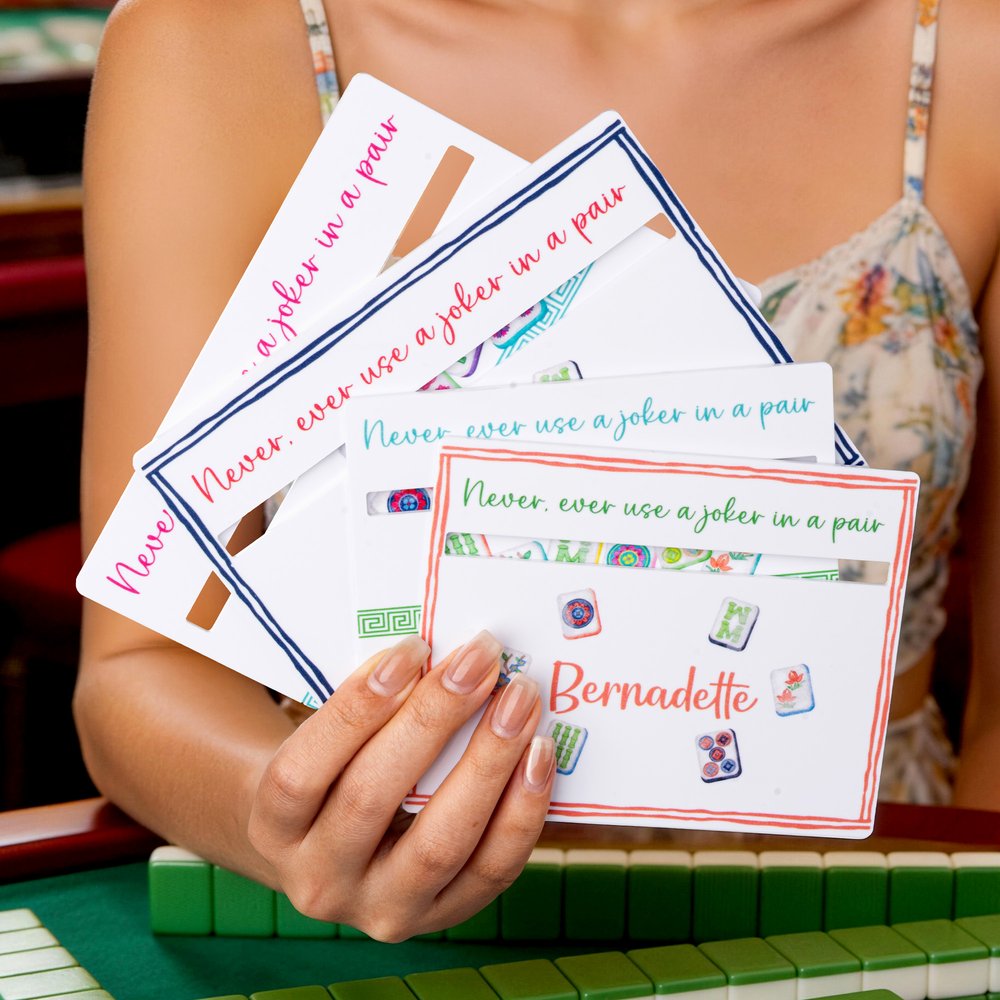 Neve a joker in a pair
Never, ever use a joker in a pair
Never, ever use a joker in a pair
Never, ever use a joker in a pair
Bernadette